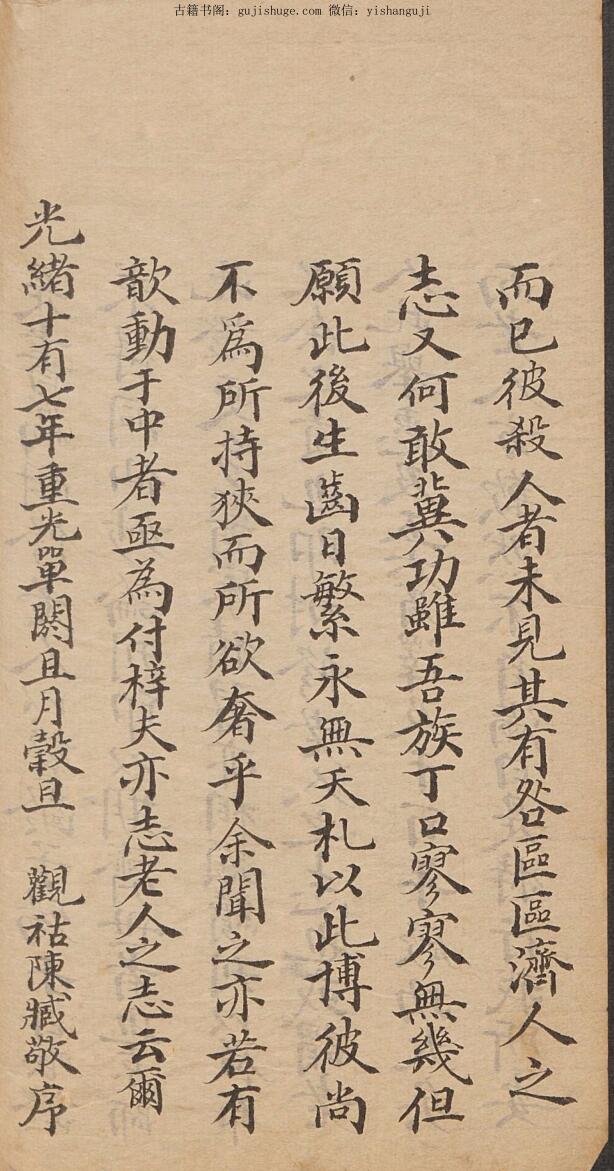 古籍书阁：gujishuge.com 微信：yishanguji
而已彼殺人者未見其有咎區區濟人之
志又何敢冀功雖吾族丁口寥寥無幾但
願此後生齒日繁永無夭札以此博彼尚
不爲所持狹而所欲奢乎余聞之亦若有
歆動于中者亟為付梓夫亦志老人之志云爾
光緒十有七年重光單閼且月穀旦　觀祜陳臧敬序